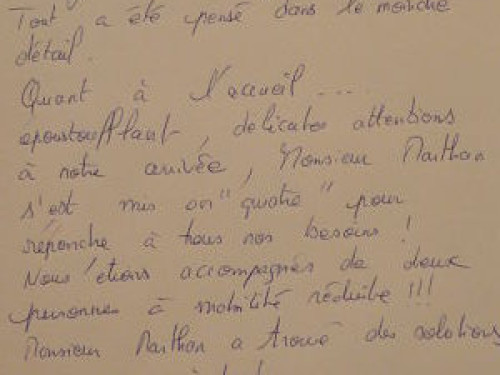 Tout a été pensé dans le moindre
détail.
Quant à l'accueil ....
epoustouflant, délicates attentions
à notre arrivée, Monsieur Marthan
s'est mis en "quatre" pour
répondre à tous nos besoins !
Nous étions accompagnés de deux
personnes à mobilité réduite !!!
Monsieur Marthan a trouvé des solutions